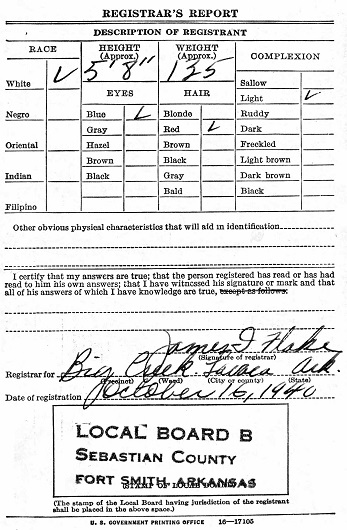 REGISTRAR'S REPORT
DESCRIPTION OF REGISTRANT
RACE HEIGHT (Approx.) WEIGHT (Approx.) COMPLEXION
5'8" 135
White ✓
EYES HAIR
Sallow
Light ✓
Negro Blue ✓ Blonde Ruddy
Gray Red ✓ Dark
Oriental Hazel Brown Freckled
Brown Black Light brown
Indian Black Gray Dark brown
Bald Black
Filipino
Other obvious physical characteristics that will aid in identification
I certify that my answers are true; that the person registered has read or has had
read to him his own answers; that I have witnessed his signature or mark and that
all of his answers of which I have knowledge are true, except as follows:
James I Flake
(Signature of registrar)
Registrar for Big Creek Ark.
(Precinct) (Ward) (City or county) (State)
Date of registration October 16, 1940
LOCAL BOARD B
SEBASTIAN COUNTY
FORT SMITH ARKANSAS
(STAMP OF LOCAL BOARD)
(The stamp of the Local Board having jurisdiction of the registrant
shall be placed in the above space.)
U. S. GOVERNMENT PRINTING OFFICE 16—17105